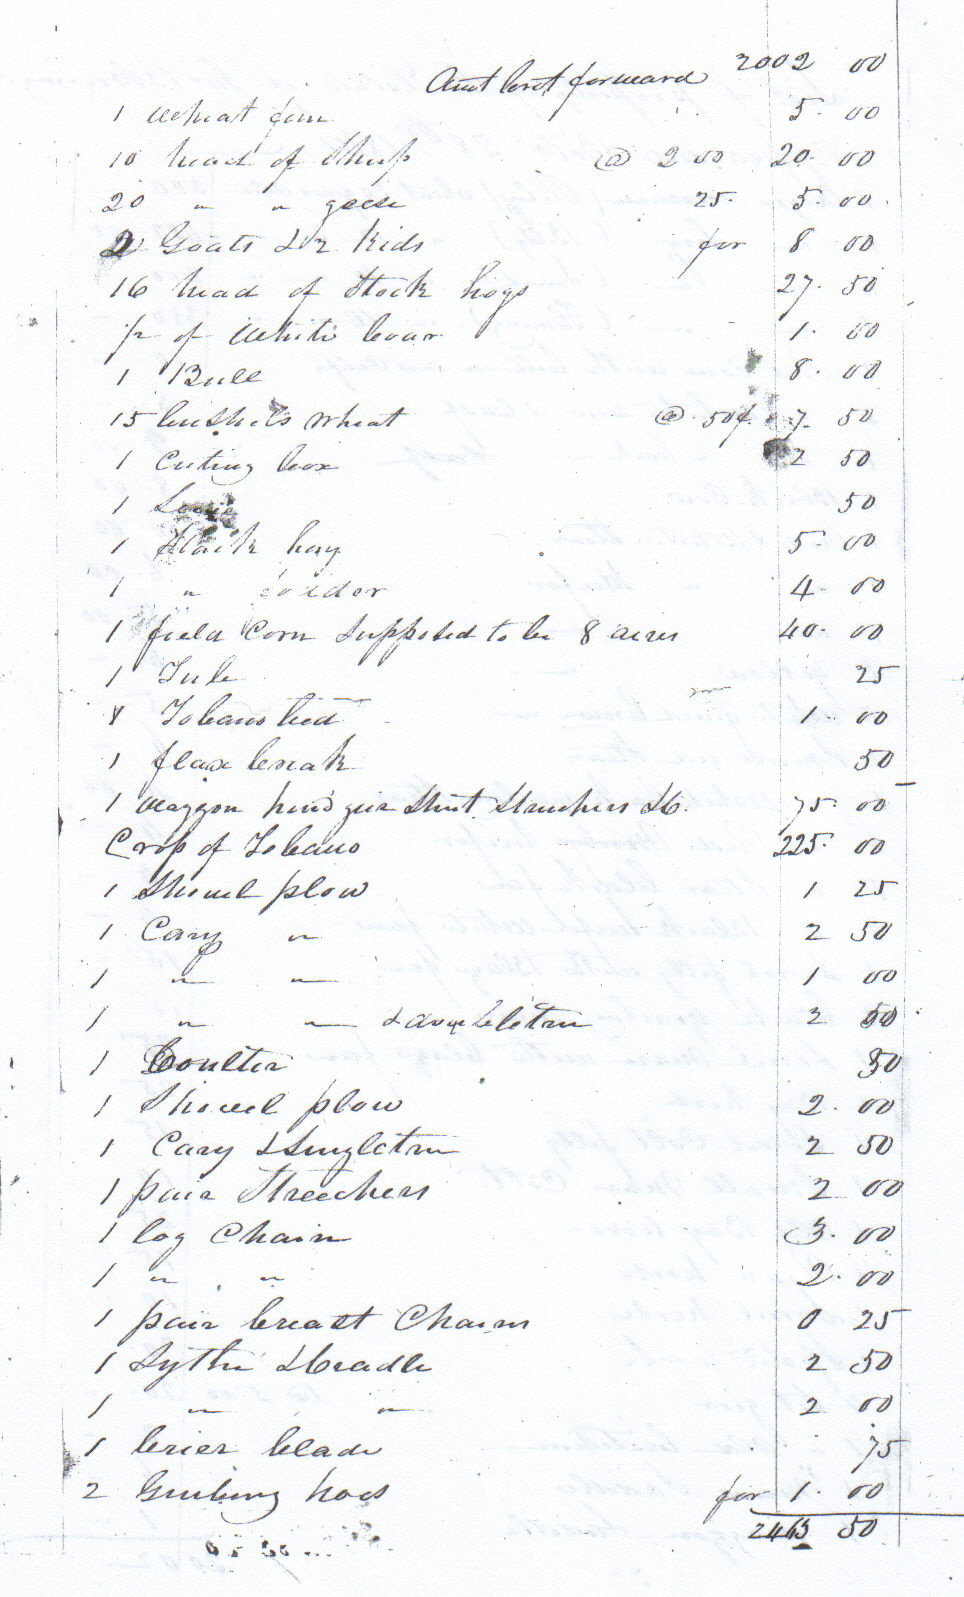 Amt brot forward 2002 00
1 Wheat fan 5. 00
10 head of Sheep @ 2 00 20. 00
20 " " geese 25. 5. 00.
2 Goats & 2 Kids for 8 00
16 head of Stock hogs 27. 50
pr of White boar 1. 00
1 Bull 8. 00
15 bushels wheat @ 50¢. 7. 50
1 Cuting box 2 50
1 50
1 Stack hay 5. 00
1 " foider 4. 00
1 field Corn Supposed to be 8 acres 40. 00
1 Tub 25
Tobacco 1. 00
1 flax break 50
1 Waggon hind gier Stretchers &c. 75. 00
Crop of Tobacco 225. 00
1 Shovel plow 1 25
1 Cary " 2 50
1 " " 1 00
1 " " & Singletree 2 50
1 Coulter 50
1 Shovel plow 2. 00
1 Cary & Singletree 2 50
1 pair Streechers 2 00
1 log Chain 3. 00
1 " " 2. 00
1 pair breast Chains 0 25
1 Sythe & Cradle 2 50
1 " " 2 00
1 brier blade 75
2 Grubing hoes for 1. 00
2463 50